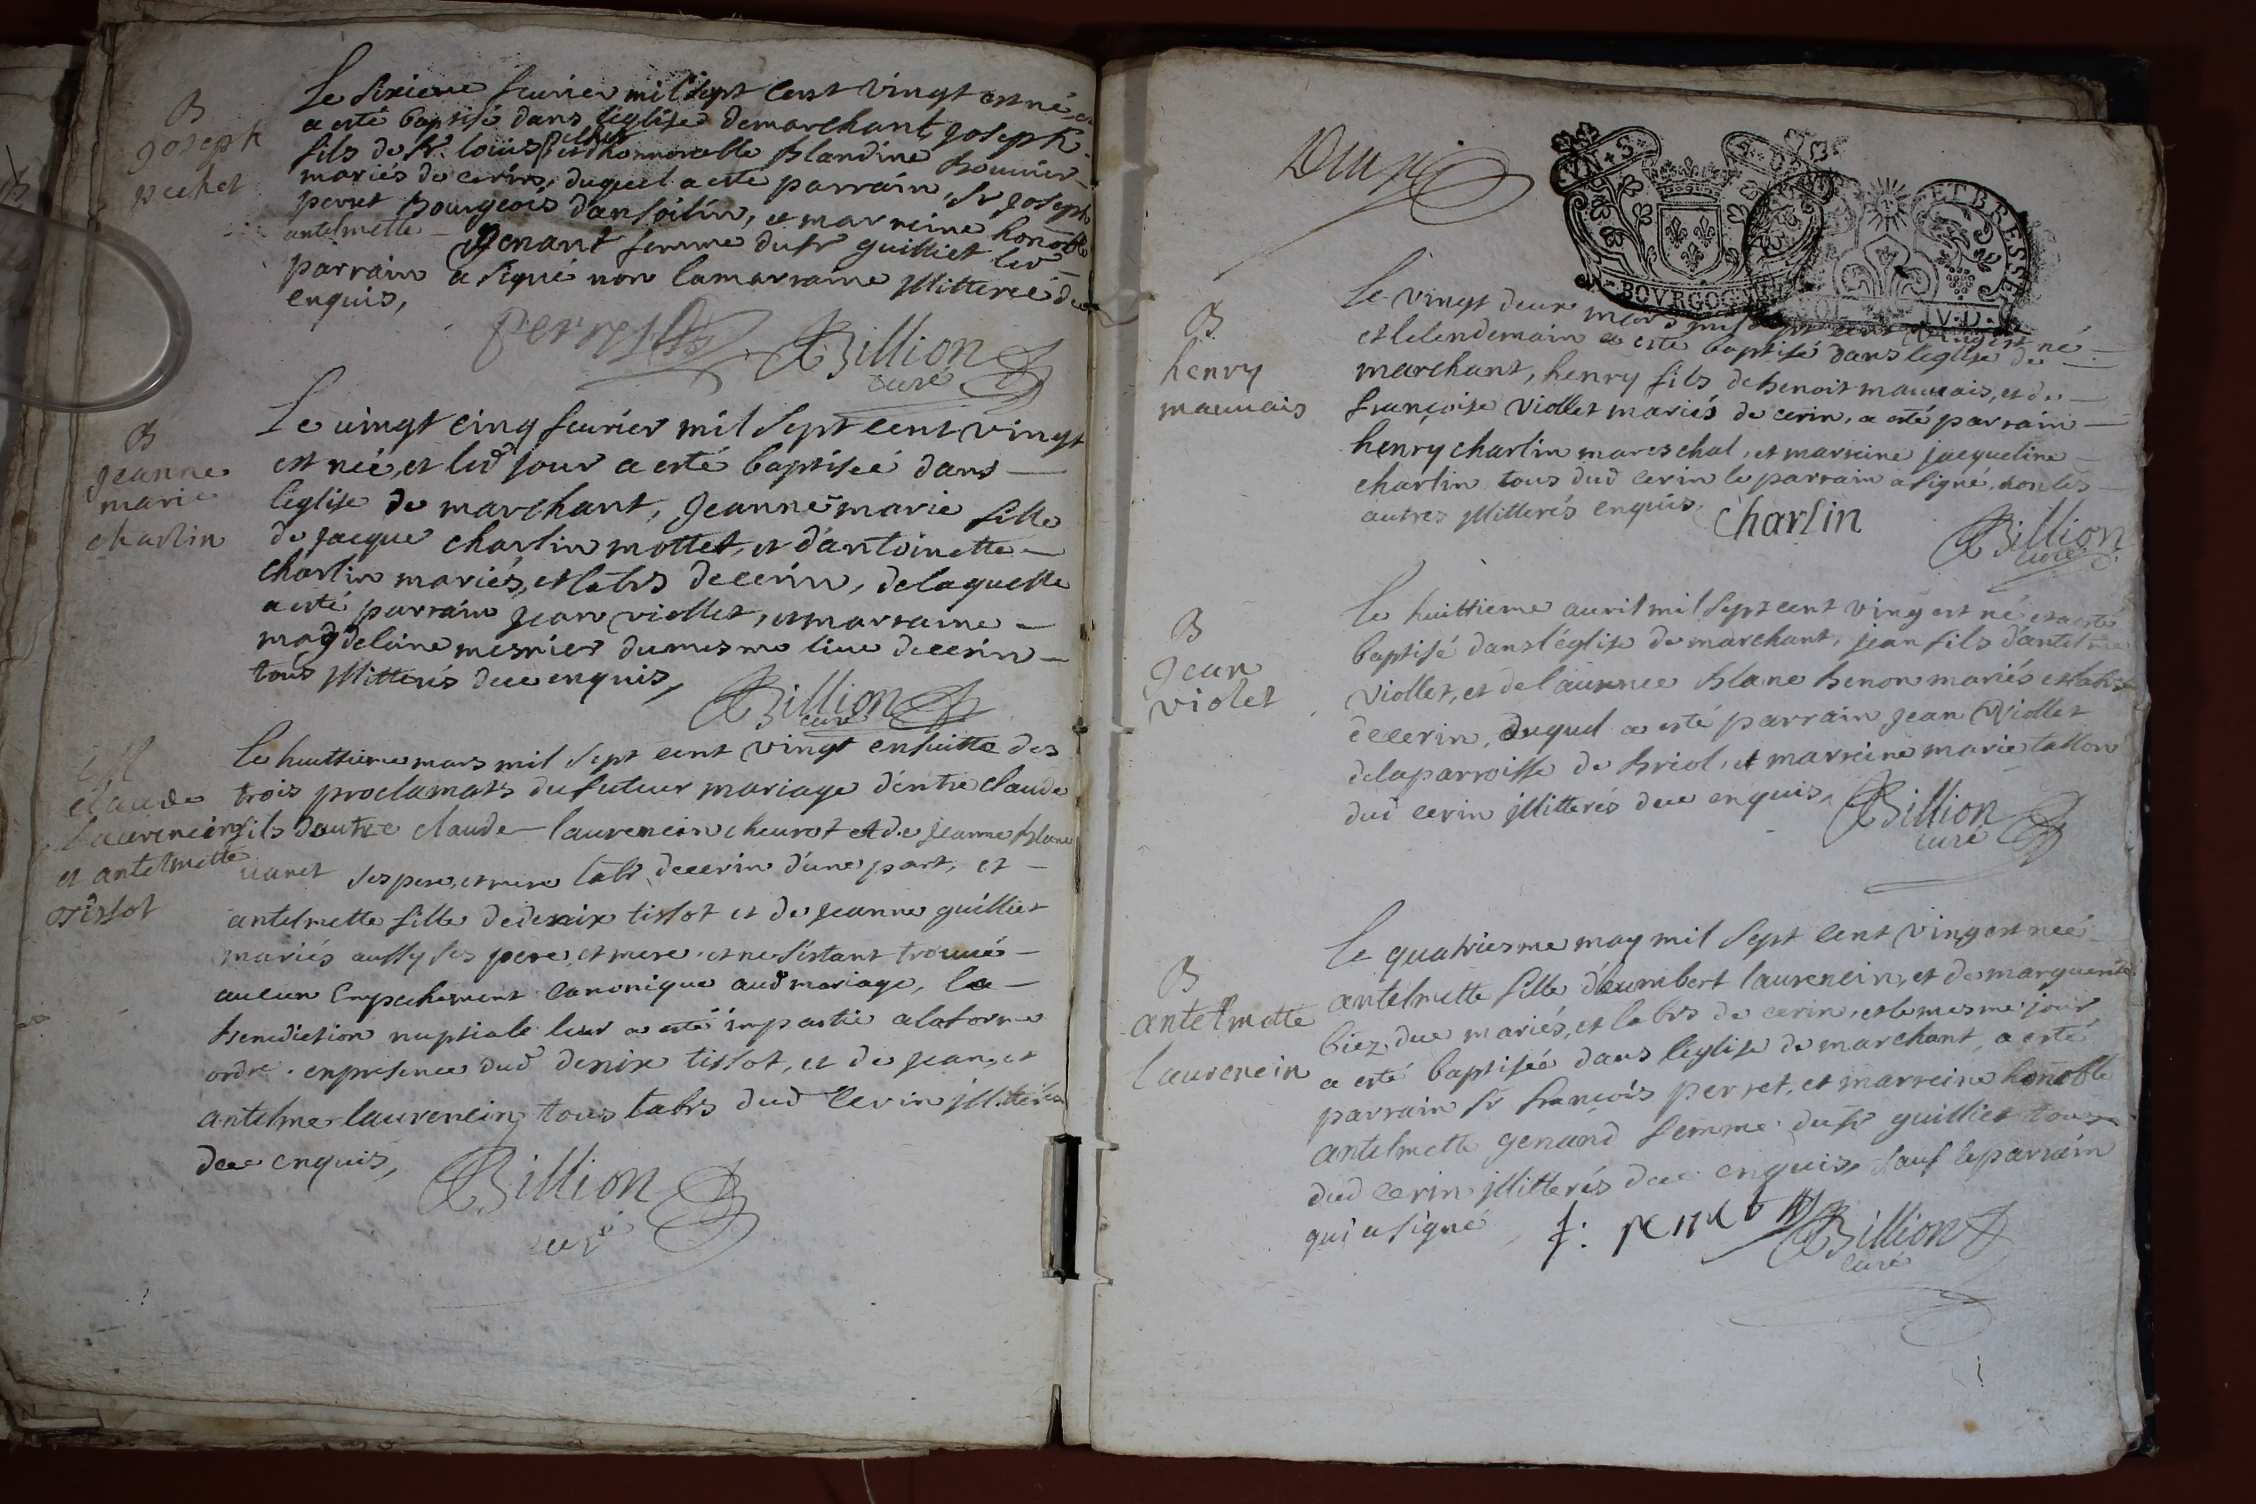 B
Joseph
pechet
Le sixieme feurier mil sept cent vingt est né, et
a esté baptisé dans l'eglise de marchant, Joseph
fils de sr louis pechet et d'honnorable Blandine Bouuier
mariés de cerin, duquel a esté parrain, sr Joseph
perret Bourgeois d'ansoilin, et marreine honoble
antelmette Genant femme du sr guilliet led
parrain a signé non la marraine jllitteree de
enquis,
perret
Billion
curé
B
Jeanne
marie
charlin
Le uingt cinq feurier mil sept cent vingt
est née, et led jour a esté baptiseé dans
l'eglise de marchant, Jeanne marie fille
de jacque charlin mottet, et d'antoinette
charlin mariés, et labrs de cerin, de laquelle
a esté parrain jean viollet, et marraine
magdelaine mesnier du mesme lieu de cerin
tous jllitterés de ce enquis,
Billion
curé
M
claude
Laurencin
et antelmette
Tissot
Le huittieme mars mil sept cent vingt ensuitte des
trois proclamats du futeur mariage d'entre claude
fils d'autre claude laurencin cheurot et de jeanne blanc
uanet ses pere, et mere labr de cerin d'une part, et
antelmette fille de denix tissot et de jeanne guilliet
mariés aussy ses pere, et mere, et ne s'estant trouué
aucun Empechement canonique aud mariage, la
Benediction nuptiale leur a esté impartie a la forme
ordre. en presence dud denix tissot, et de jean, et
antelme laurencin tous labrs dud Cerin jllitterés
de ce enquis,
Billion
curé
BOVRGOG
ET BRESSE
B
henry
mauuais
Le vingt deux mars mil sept cent vingt est né
et le lendemain a esté baptisé dans l'eglise de
marchant, henry fils de benoit mauuais, et de
françoise viollet mariés de cerin, a esté parrain
henry charlin mareschal, et marreine jacqueline
charlin tous dud cerin le parrain a signé, non les
autres jllitterés enquis,
charlin
Billion
curé
B
Jean
violet
Le huittieme auril mil sept cent ving est né et a esté
baptisé dans l'église de marchant, jean fils d'antelme
viollet, et de laurence blanc benon mariés et labrs
de cerin, duquel a esté parrain jean Viollet
de la parroisse de briol, et marreine marie tallon
dud cerin jllitterés de ce enquis,
Billion
curé
B
antelmette
laurencin
Le quatriesme may mil sept cent ving est neé
antelmette fille d'humbert laurencin, et de marguerite
biez due mariés, et labrs de cerin, et le mesme jour
a esté baptisée dans l'eglise de marchant, a esté
parrain sr françois perret, et marreine honoble
antelmette genand femme du sr guilliet tous
dud cerin jllitterés de ce enquis, sauf le parrain
qui a signé
f: perret
Billion
curé